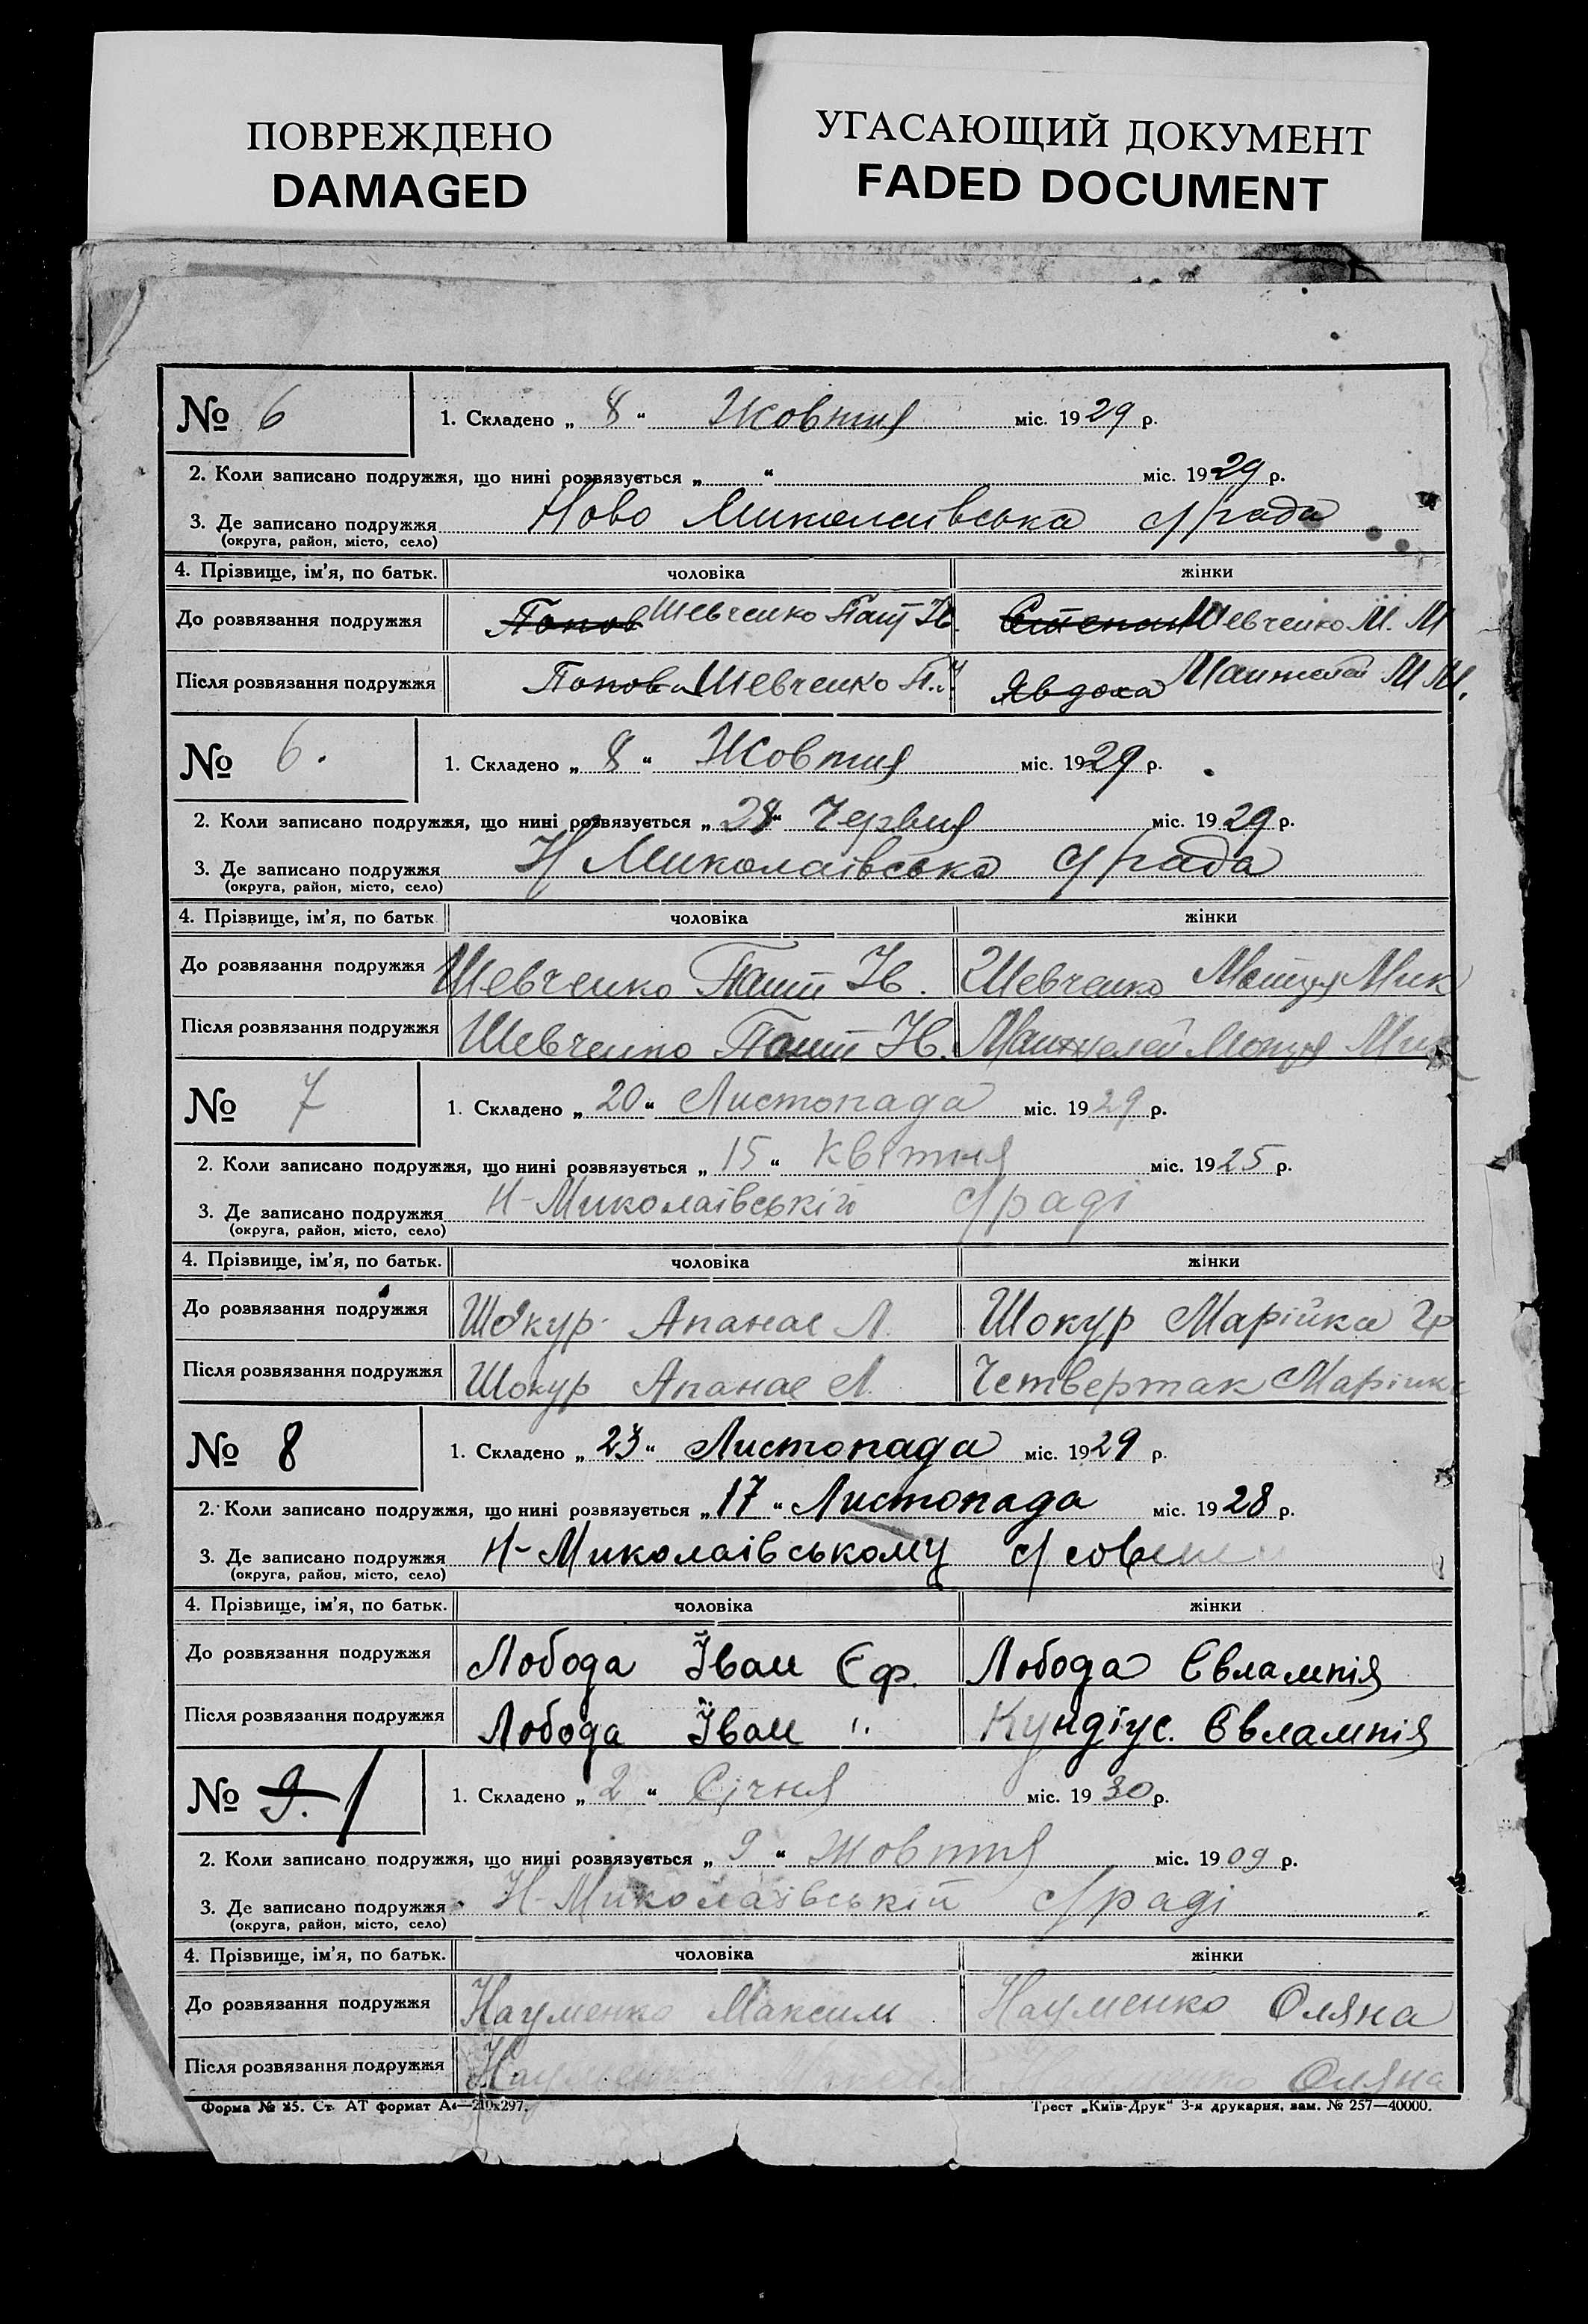 ПОВРЕЖДЕНО
DAMAGED
УГАСАЮЩИЙ ДОКУМЕНТ
FADED DOCUMENT
№ 6
1. Складено „ 8 “ Жовтня міс. 1929 р.
2. Коли записано подружжя, що нині розвязується „ “ міс. 1929 р.
3. Де записано подружжя Ново Миколаївська с/рада
(округа, район, місто, село)
4. Прізвище, ім’я, по батьк. чоловіка жінки
До розвязання подружжя Попов Шевченко Пант Ів. Шевченко М. М
Після розвязання подружжя Попов Шевченко П. Явдоха Манжелей М М.
№ 6.
1. Складено „ 8 “ Жовтня міс. 1929 р.
2. Коли записано подружжя, що нині розвязується „ 28 “ Червня міс. 1929 р.
3. Де записано подружжя Н Миколаївська с/рада
(округа, район, місто, село)
4. Прізвище, ім’я, по батьк чоловіка жінки
До розвязання подружжя Шевченко Пант Ів. Шевченко Мотря Мик
Після розвязання подружжя Шевченко Пант Ів. Манжелей Мотря Мик
№ 7
1. Складено „ 20 “ Листопада міс. 1929 р.
2. Коли записано подружжя, що нині розвязується „ 15 “ Квітня міс. 1925 р.
3. Де записано подружжя Н-Миколаівській с/раді
(округа, район, місто, село)
4. Прізвище, ім’я, по батьк. чоловіка жінки
До розвязання подружжя Шокур Апанас Л. Шокур Марійка Гр
Після розвязання подружжя Шокур Апанас Л. Четвертак Марійк
№ 8
1. Складено „ 23 “ Листопада міс. 1929 р.
2. Коли записано подружжя, що нині розвязується „ 17 “ Листопада міс. 1928 р.
3. Де записано подружжя Н-Миколаівському с/советі
(округа, район, місто, село)
4. Прізвище, ім’я, по батьк. чоловіка жінки
До розвязання подружжя Лобода Іван Єф. Лобода Євлампія
Після розвязання подружжя Лобода Іван " Кундіус. Євлампія
№ 9. 1
1. Складено „ 2 “ Січня міс. 1930 р.
2. Коли записано подружжя, що нині розвязується „ 9 “ Жовтня міс. 1909 р.
3. Де записано подружжя Н-Миколаівській с/раді
(округа, район, місто, село)
4. Прізвище, ім’я, по батьк. чоловіка жінки
До розвязання подружжя Науменко Максим Науменко Оляна
Після розвязання подружжя Науменко Оляна
Форма № 25. Ст. АТ формат А4—210x297.
Трест „Київ-Друк“ 3-я друкарня, зам. № 257—40000.